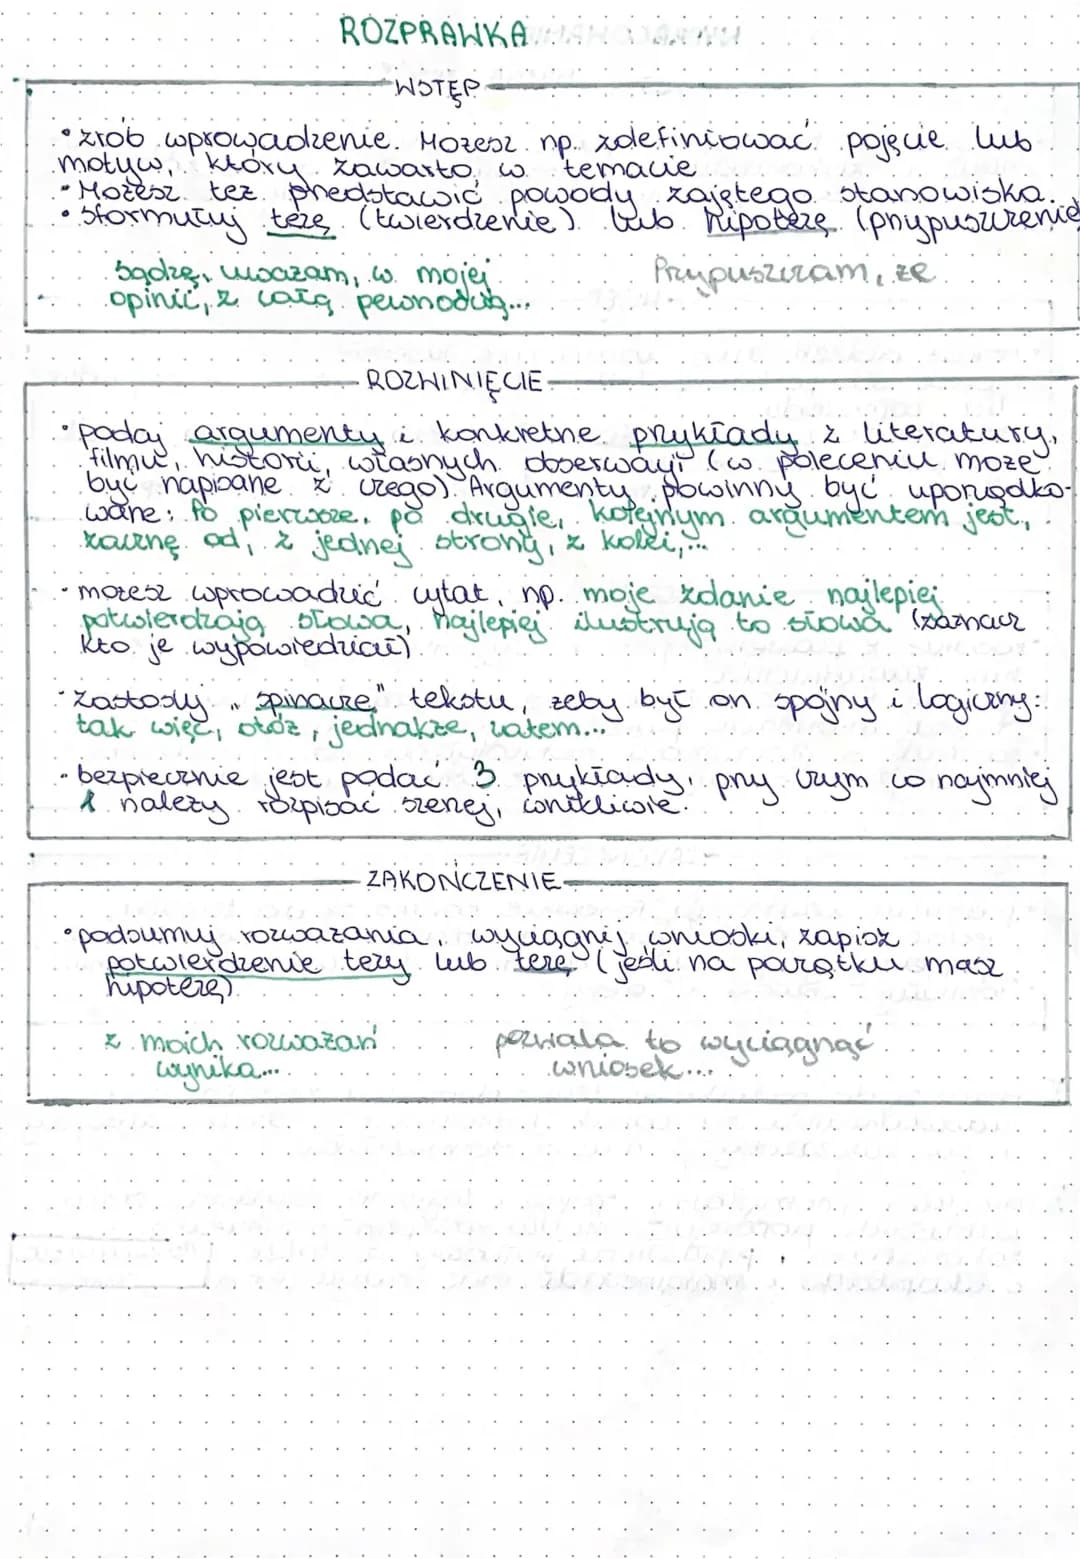 ROZPRAWKA
WSTĘP
• zrób wprowadzenie. Możesz np. zdefiniować pojęcie lub
motyw, który zawarto w temacie
• Możesz też przedstawić powody zajętego stanowiska.
• Sformułuj tezę (twierdzenie) lub hipotezę (przypuszczenie
Sądzę, uważam, w mojej
opinii, z całą pewnością...
Przypuszczam, że
ROZWINIĘCIE
• podaj argumenty i konkretne przykłady z literatury,
filmu, historii, własnych obserwacji (w poleceniu może
być napisane z czego). Argumenty powinny być uporządko-
wane: Po pierwsze, po drugie, kolejnym argumentem jest,
zacznę od, z jednej strony, z kolei,...
• możesz wprowadzić cytat, np. moje zdanie najlepiej
potwierdzają słowa, najlepiej ilustrują to słowa (zaznacz
kto je wypowiedział)
• zastosuj „spinacze" tekstu, żeby był on spójny i logiczny:
tak więc, otóż, jednakże, zatem...
• bezpiecznie jest podać 3 przykłady, przy czym co najmniej
1 należy rozpisać szerzej, wnikliwie.
ZAKOŃCZENIE
• podsumuj rozważania, wyciągnij wnioski, zapisz
potwierdzenie tezy lub tezę (jeśli na początku masz
hipotezę)
z moich rozważań
wynika...
pozwala to wyciągnąć
wniosek...